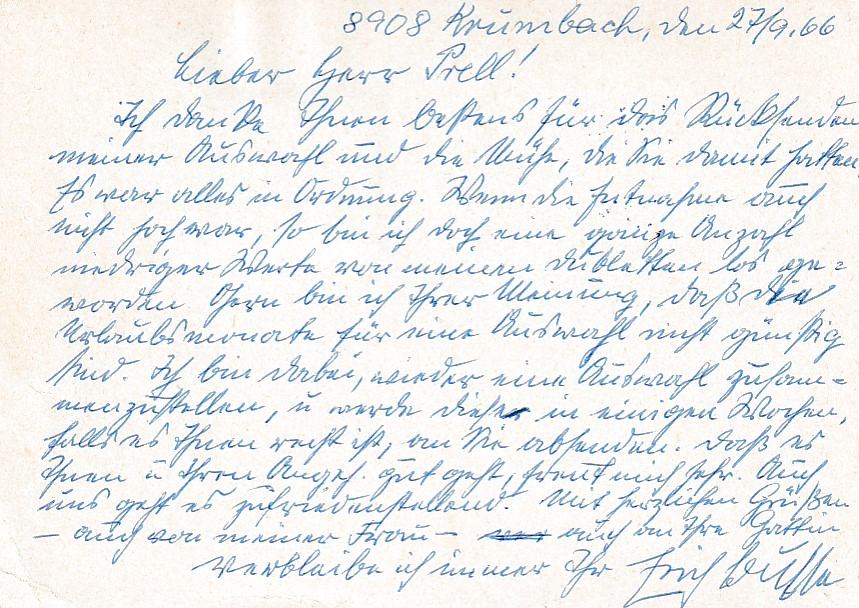 8908 Krumbach, den 27/9.66
Lieber Herr Prell!
Ich danke Ihnen bestens für das Rücksenden
meiner Auswahl und die Mühe, die Sie damit hatten.
Es war alles in Ordnung. Wenn die Entnahme auch
nicht hoch war, so bin ich doch eine ganze Anzahl
niedriger Werte von meinen Dubletten los ge=
worden. Gern bin ich Ihrer Meinung, daß die
Urlaubsmonate für eine Auswahl nicht günstig
sind. Ich bin dabei, wieder eine Auswahl zusam=
menzustellen, u werde diese in einigen Wochen,
falls es Ihnen recht ist, an Sie absenden. Daß es
Ihnen u Ihren Angeh. gut geht, freut mich sehr. Auch
uns geht es zufriedenstellend. Mit herzlichen Grüßen
– auch von meiner Frau – auch an Ihre Gattin
verbleibe ich immer Ihr Erich Busse